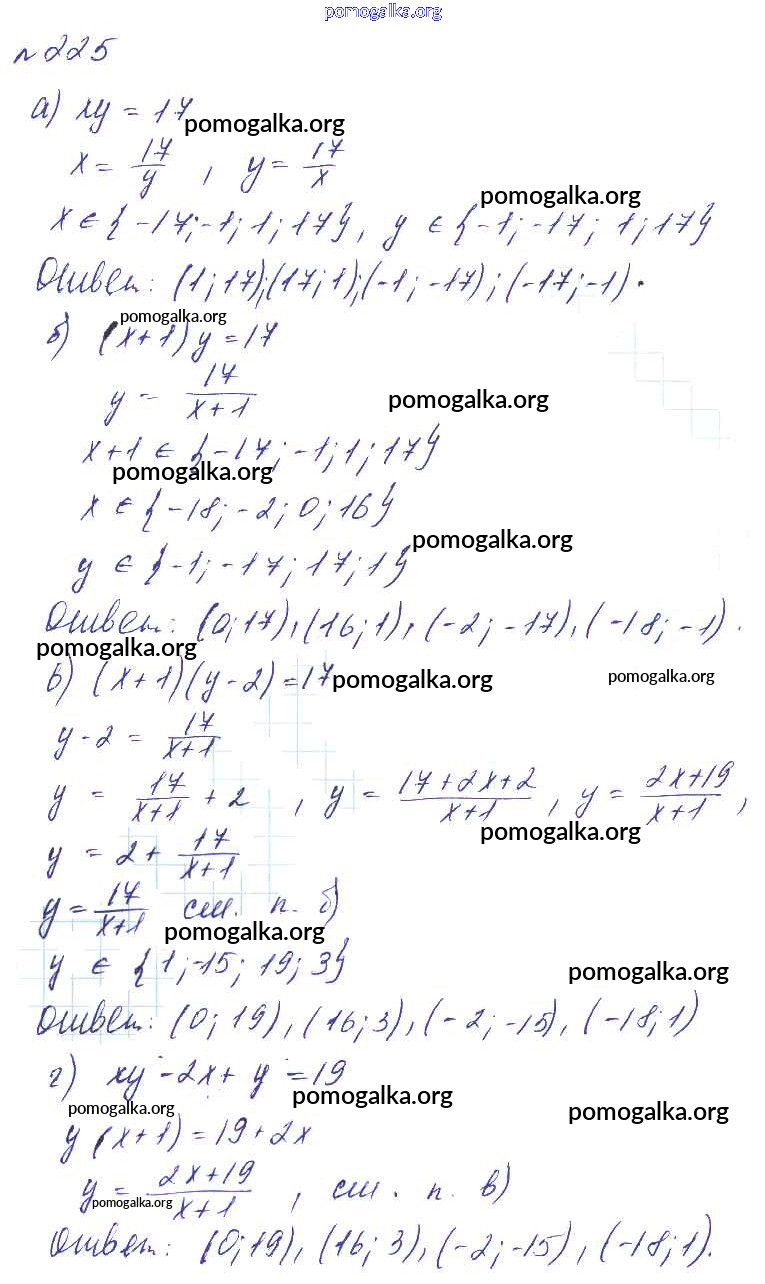 pomogalka.org
№225
а) xy = 17
pomogalka.org
x = 17/y , y = 17/x
pomogalka.org
x ∈ {-17; -1; 1; 17}, y ∈ {-1; -17; 1; 17}
Ответ: (1; 17); (17; 1); (-1; -17); (-17; -1).
pomogalka.org
б) (x+1) y = 17
y = 17/(x+1)
pomogalka.org
x+1 ∈ {-17; -1; 1; 17}
pomogalka.org
x ∈ {-18; -2; 0; 16}
pomogalka.org
y ∈ {-1; -17; 17; 1}
Ответ: (0; 17), (16; 1), (-2; -17), (-18; -1).
pomogalka.org
в) (x+1)(y-2) = 17
pomogalka.org
pomogalka.org
y-2 = 17/(x+1)
y = 17/(x+1) + 2 , y = (17+2x+2)/(x+1) , y = (2x+19)/(x+1) ,
pomogalka.org
y = 2 + 17/(x+1)
y = 17/(x+1) см. п. б)
pomogalka.org
y ∈ {1; -15; 19; 3}
pomogalka.org
Ответ: (0; 19), (16; 3), (-2; -15), (-18; 1)
г) xy - 2x + y = 19
pomogalka.org
pomogalka.org
pomogalka.org
y (x+1) = 19 + 2x
y = (2x+19)/(x+1) , см. п. в)
pomogalka.org
Ответ: (0; 19), (16; 3), (-2; -15), (-18; 1).